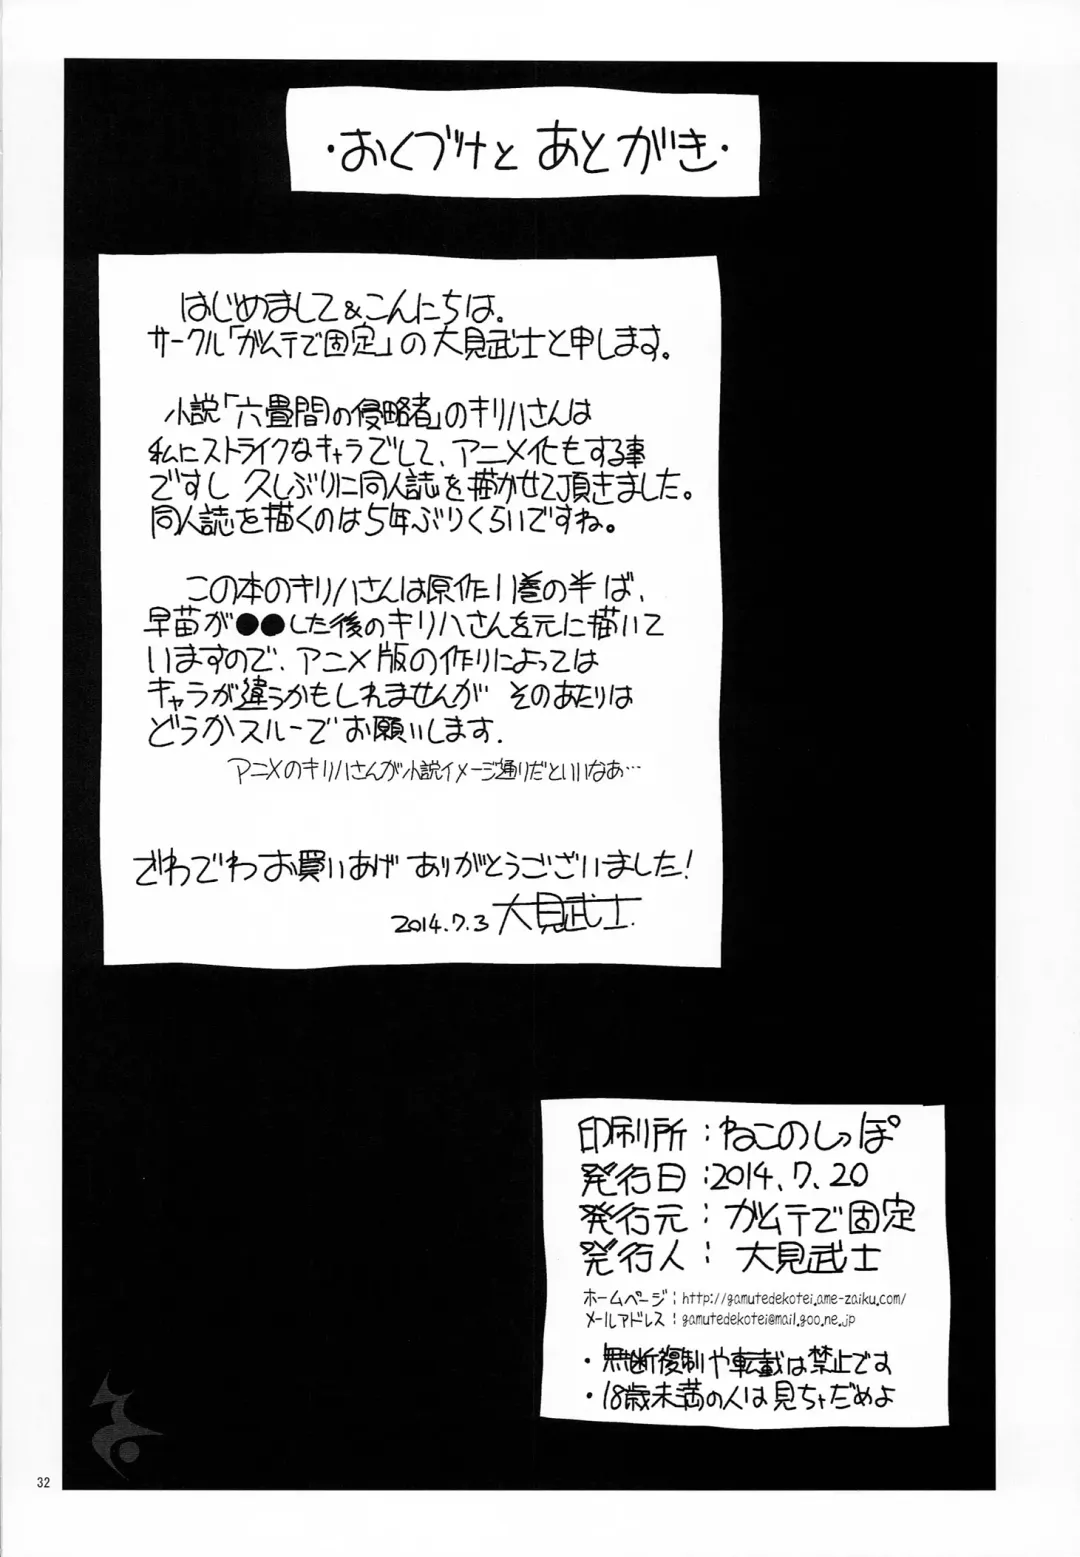 ・おくづけと あとがき・
はじめまして&こんにちは。
サークル「ガムテで固定」の大見武士と申します。
小説「六畳間の侵略者」のキリハさんは
私にストライクなキャラでして、アニメ化もする事
ですし 久しぶりに同人誌を描かせて頂きました。
同人誌を描くのは5年ぶりくらいですね。
この本のキリハさんは原作11巻の半ば、
早苗が●●した後のキリハさんを元に描いて
いますので、アニメ版の作りによっては
キャラが違うかもしれませんが そのあたりは
どうかスルーでお願いします.
アニメのキリハさんが小説イメージ通りだといいなあ…
でわでわお買いあげ ありがとうございました!
2014.7.3 大見武士.
印刷所:ねこのしっぽ
発行日:2014.7.20
発行元:ガムテで固定
発行人:大見武士
ホームページ:http://gamutedekotei.ame-zaiku.com/
メールアドレス:gamutedekotei@mail.goo.ne.jp
・無断複製や転載は禁止です
・18歳未満の人は見ちゃだめよ
32